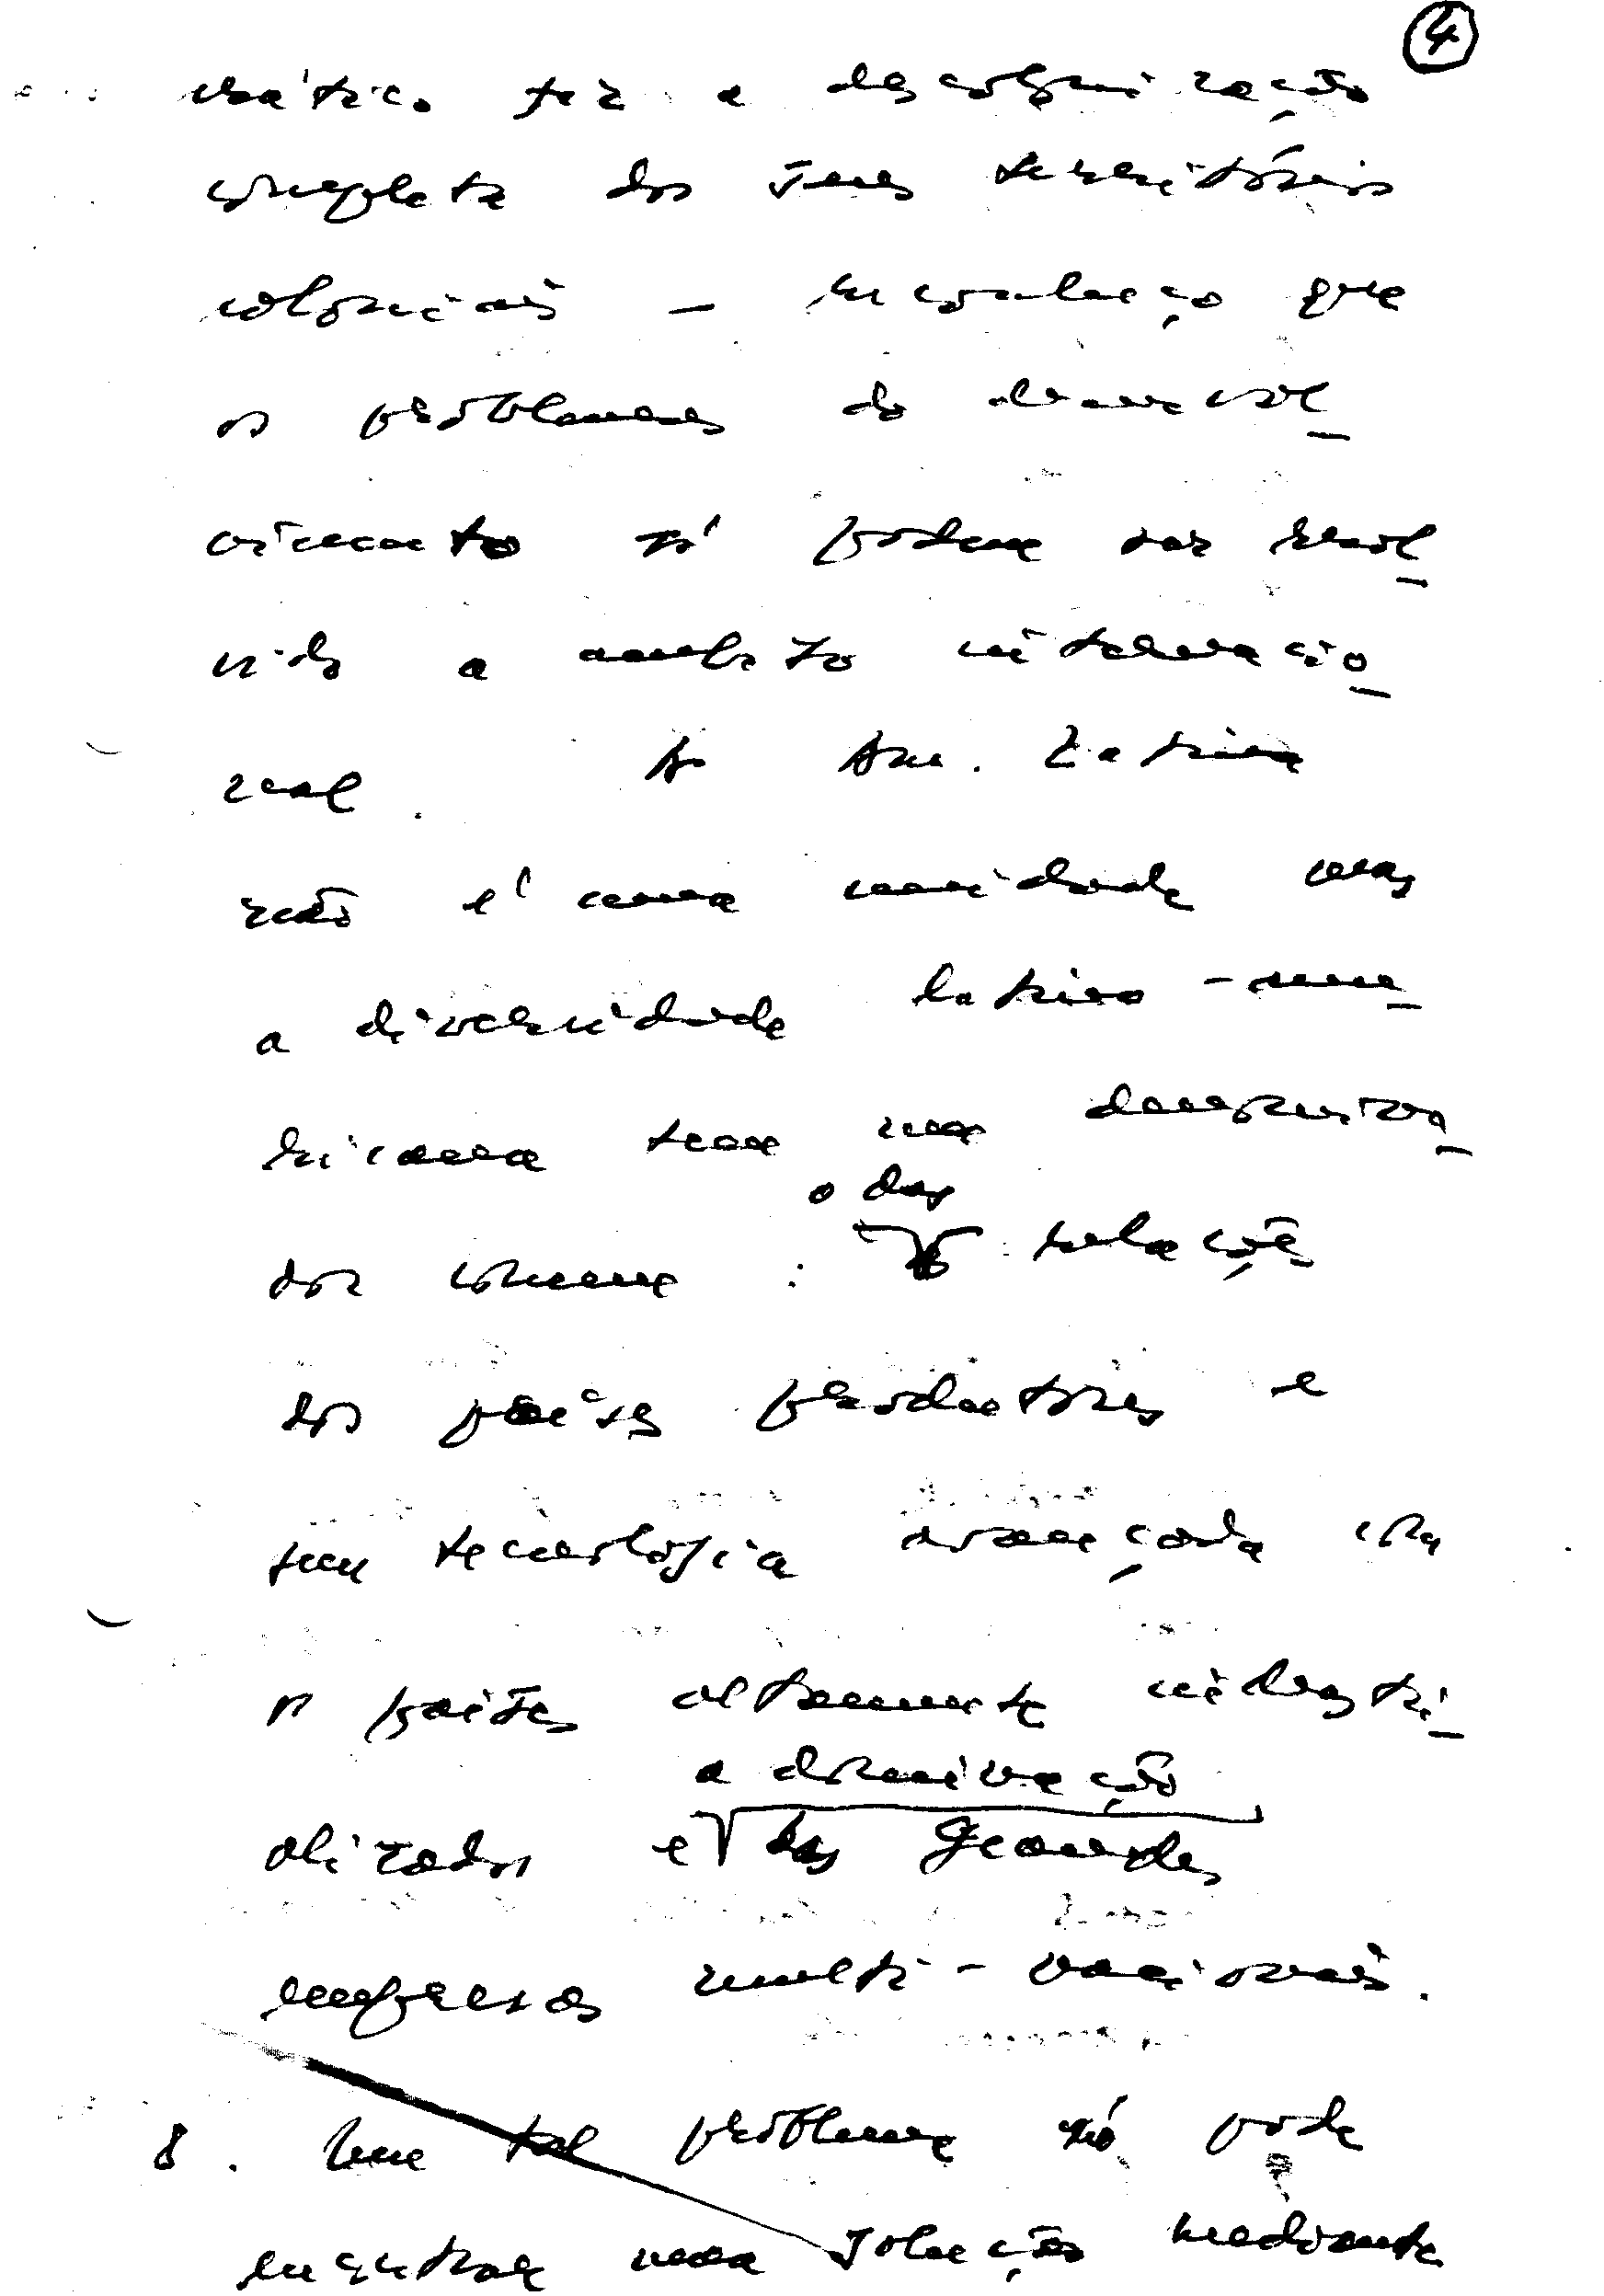 4
crático fez a descolonização
completa dos seus territórios
coloniais – reconheço que
os problemas do desenvol_
vimento só podem ser resol_
vidos a ambito internacio_
nal. A Am. Latina
não é uma unidade mas
a diversidade latino-ame_
ricana tem um denomina_
dor comum : o das relações
dos países productores e
sem tecnologia avançada com
os países altamente industri_
alizados e a dominação das grandes
empresas multi-nacionais.
8. Um tal problema só pode
encontrar uma solução mediante